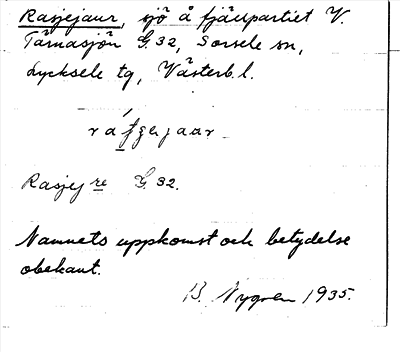 Rasjejaur, sjö å fjällpartiet V.
Tärnasjön G. 32, Sorsele sn,
Lycksele tg, Västerb. l.
Rasjej re G. 32.
Namnets uppkomst och betydelse
obekant.
B. Nygren 1935.